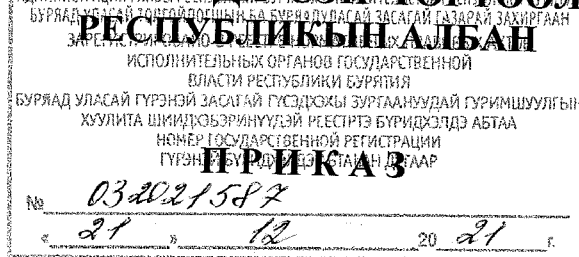 РЕСПУБЛИКЫН АЛБАН
ИСПОЛНИТЕЛЬНЫХ ОРГАНОВ ГОСУДАРСТВЕННОЙ
ВЛАСТИ РЕСПУБЛИКИ БУРЯТИЯ
БУРЯАД УЛАСАЙ ГҮРЭНЭЙ ЗАСАГАЙ ГҮСЭДХЭХЫ ЗУРГААНУУДАЙ ГУРИМШУУЛГЫН
ХУУЛИТА ШИИДХЭБЭРИНҮҮДЭЙ РЕЕСТРТЭ БҮРИДХЭЛДЭ АБТАА
НОМЕР ГОСУДАРСТВЕННОЙ РЕГИСТРАЦИИ
ПРИКАЗ
№ 032021587
« 21 » 12 20 21 г.